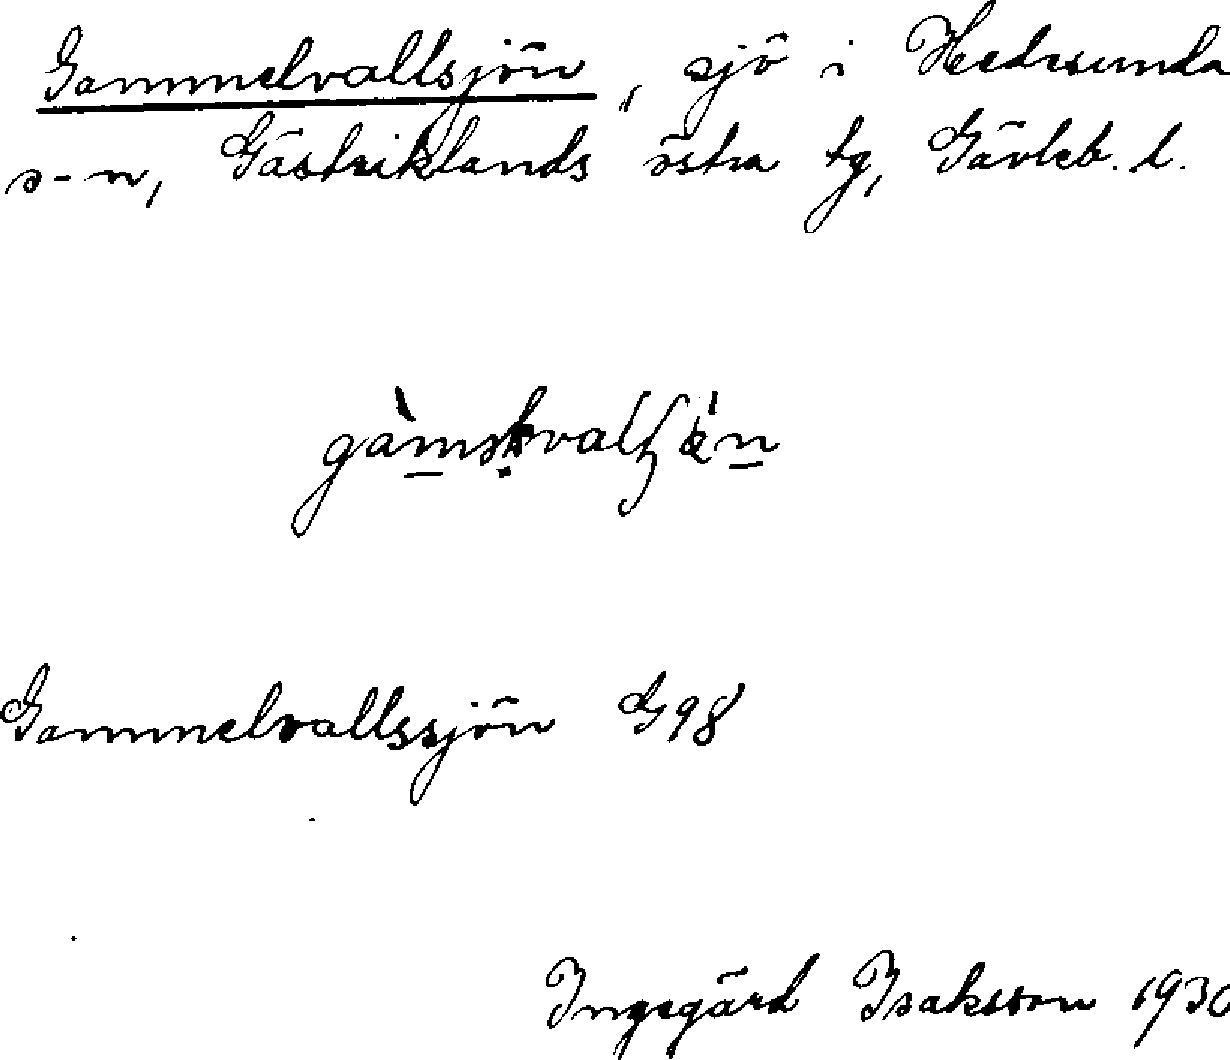 Gammelvallsjön, sjö i Hedesunda
s-n, Gästriklands östra tg, Gävleb. l.
Gammelvallssjön G98
Ingegärd Isaksson 1930